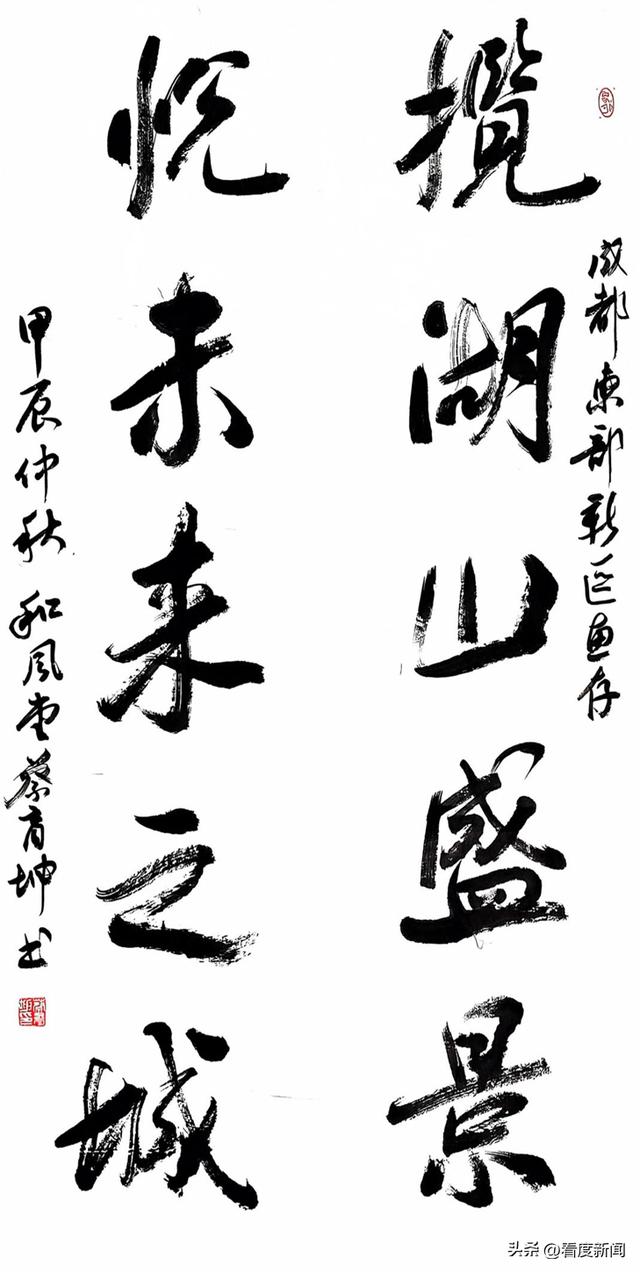 攬湖山盛景
成都東部新区惠存
悦未来之城
甲辰仲秋 和风堂蔡育坤书
头条 @看度新闻